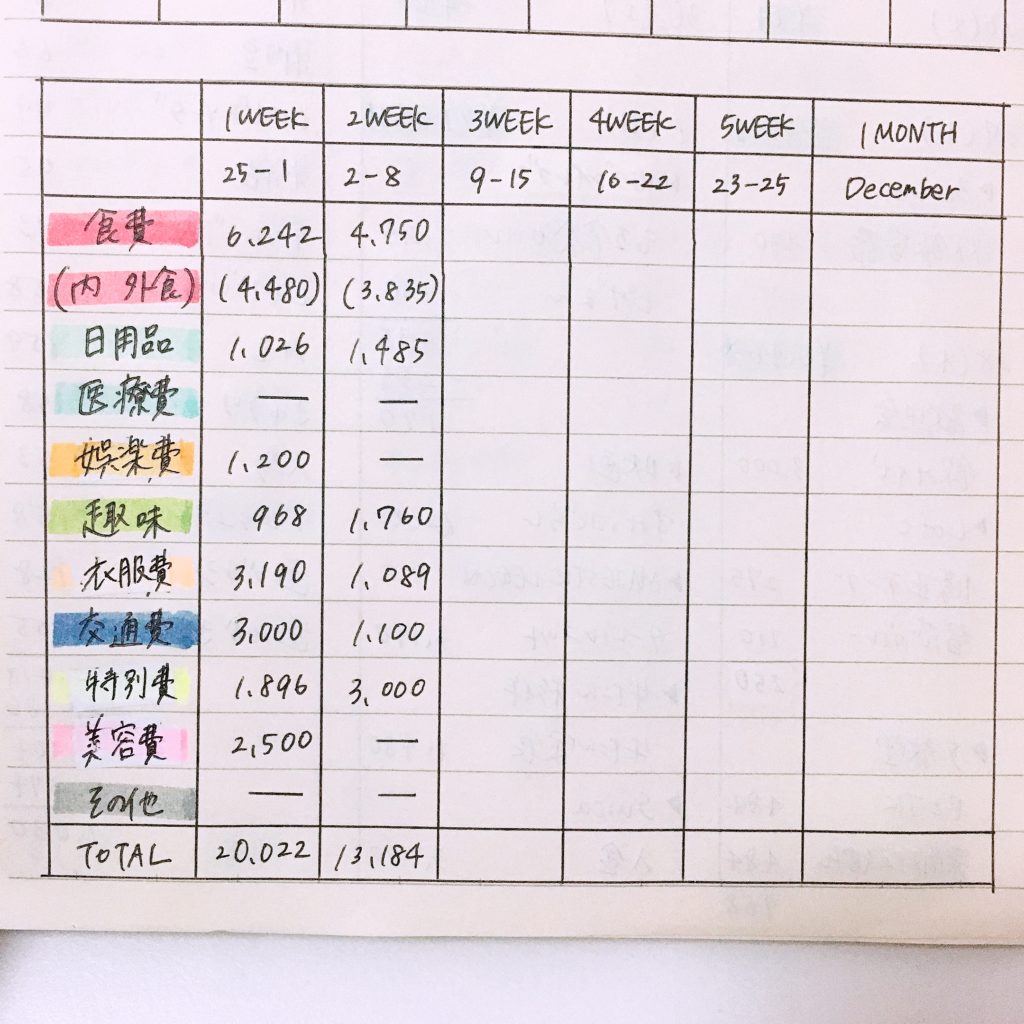 1WEEK 2WEEK 3WEEK 4WEEK 5WEEK 1 MONTH
25-1 2-8 9-15 16-22 23-25 December
食費 6,242 4,750
(内 外食) (4,480) (3,835)
日用品 1,026 1,485
医療費 — —
娯楽費 1,200 —
趣味 968 1,760
衣服費 3,190 1,089
交通費 3,000 1,100
特別費 1,896 3,000
美容費 2,500 —
その他 — —
TOTAL 20,022 13,184